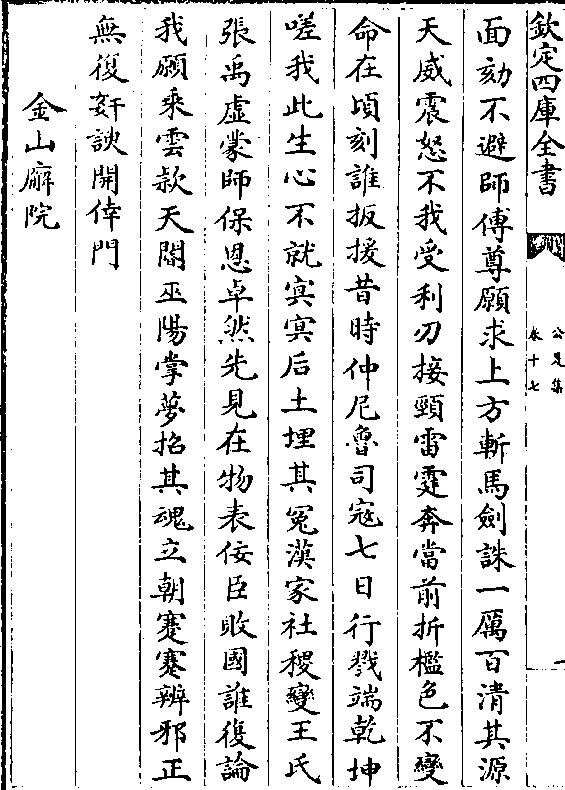 欽定四庫全書
公是集
卷十七
一
面劾不避師傅尊願求上方斬馬劍誅一厲百清其源
天威震怒不我受利刃接頸雷霆奔當前折檻色不變
命在頃刻誰扳援昔時仲尼魯司寇七日行戮端乾坤
嗟我此生心不就寅寅后土埋其冤漢家社稷變王氏
張禹虛蒙師保恩卓然先見在物表佞臣敗國誰復論
我願乘雲款天閽巫陽掌夢招其魂立朝蹇蹇辨邪正
無復奸諛開倖門
金山廨院